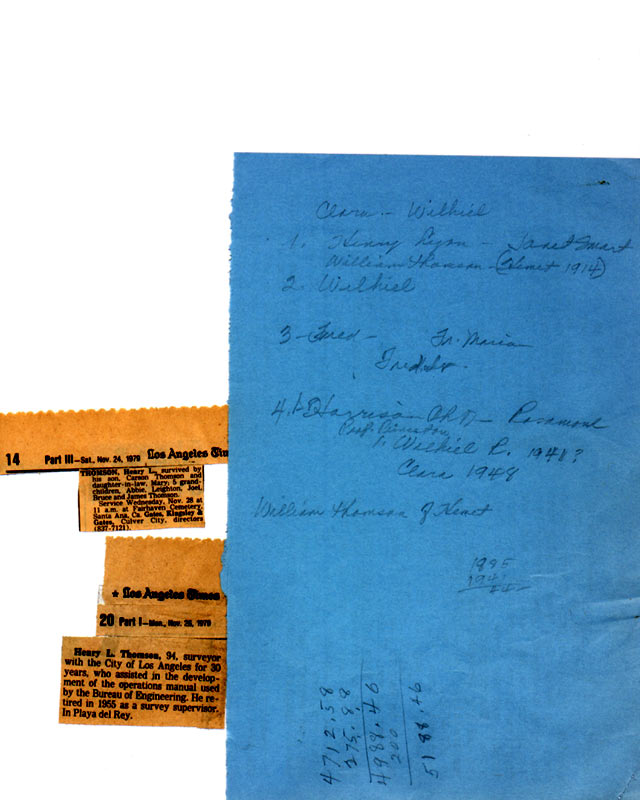 Clara - Wilhiel
1. Henry Lyon - Janet Smart
William Thomson - (Hemet 1914)
2. Wilhiel
3 - Fred - Fr. Maria
Fred, Sr.
4. Harrison - Rosamond
1. Wilhiel R. 1948?
Clara 1948
William Thomson of Hemet
1895
4712.58
275.88
4988.46
200
5188.46
14 Part III—Sat., Nov. 24, 1979 Los Angeles Tim
THOMSON, Henry L., survived by
his son, Carson Thomson and
daughter-in-law, Mary, 5 grand-
children, Abbie, Leighton, Joel,
Bruce and James Thomson.
Service Wednesday, Nov. 28 at
11 a.m. at Fairhaven Cemetery,
Santa Ana, Ca. Gates, Kingsley &
Gates, Culver City, directors
(837-7121).
★ Los Angeles Times
20 Part I—Mon., Nov. 26, 1979
Henry L. Thomson, 94, surveyor
with the City of Los Angeles for 30
years, who assisted in the develop-
ment of the operations manual used
by the Bureau of Engineering. He re-
tired in 1955 as a survey supervisor.
In Playa del Rey.